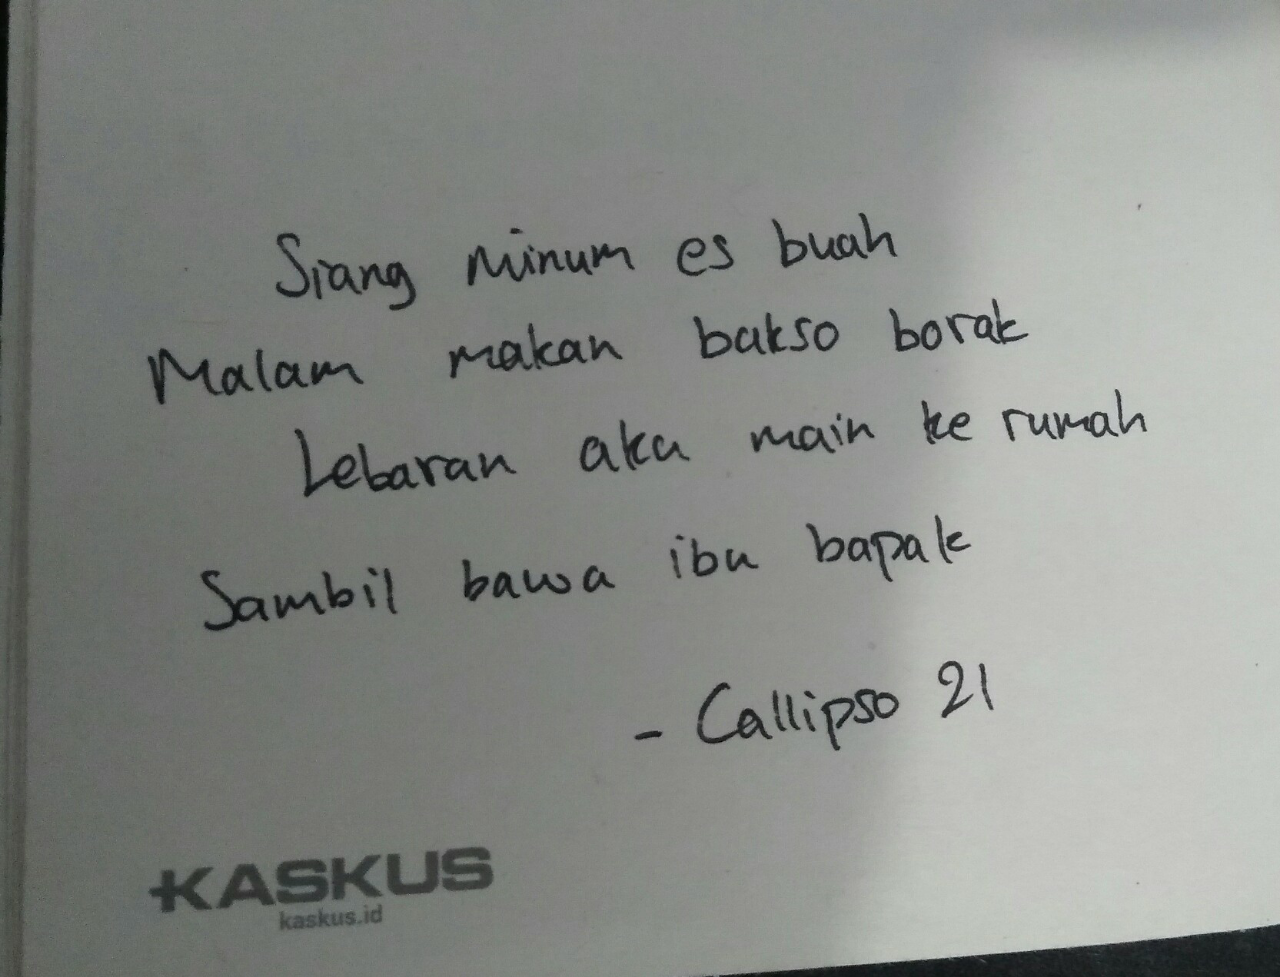 Siang minum es buah
Malam makan bakso borak
Lebaran aku main ke rumah
Sambil bawa ibu bapak
- Callipso 21
KASKUS
kaskus.id